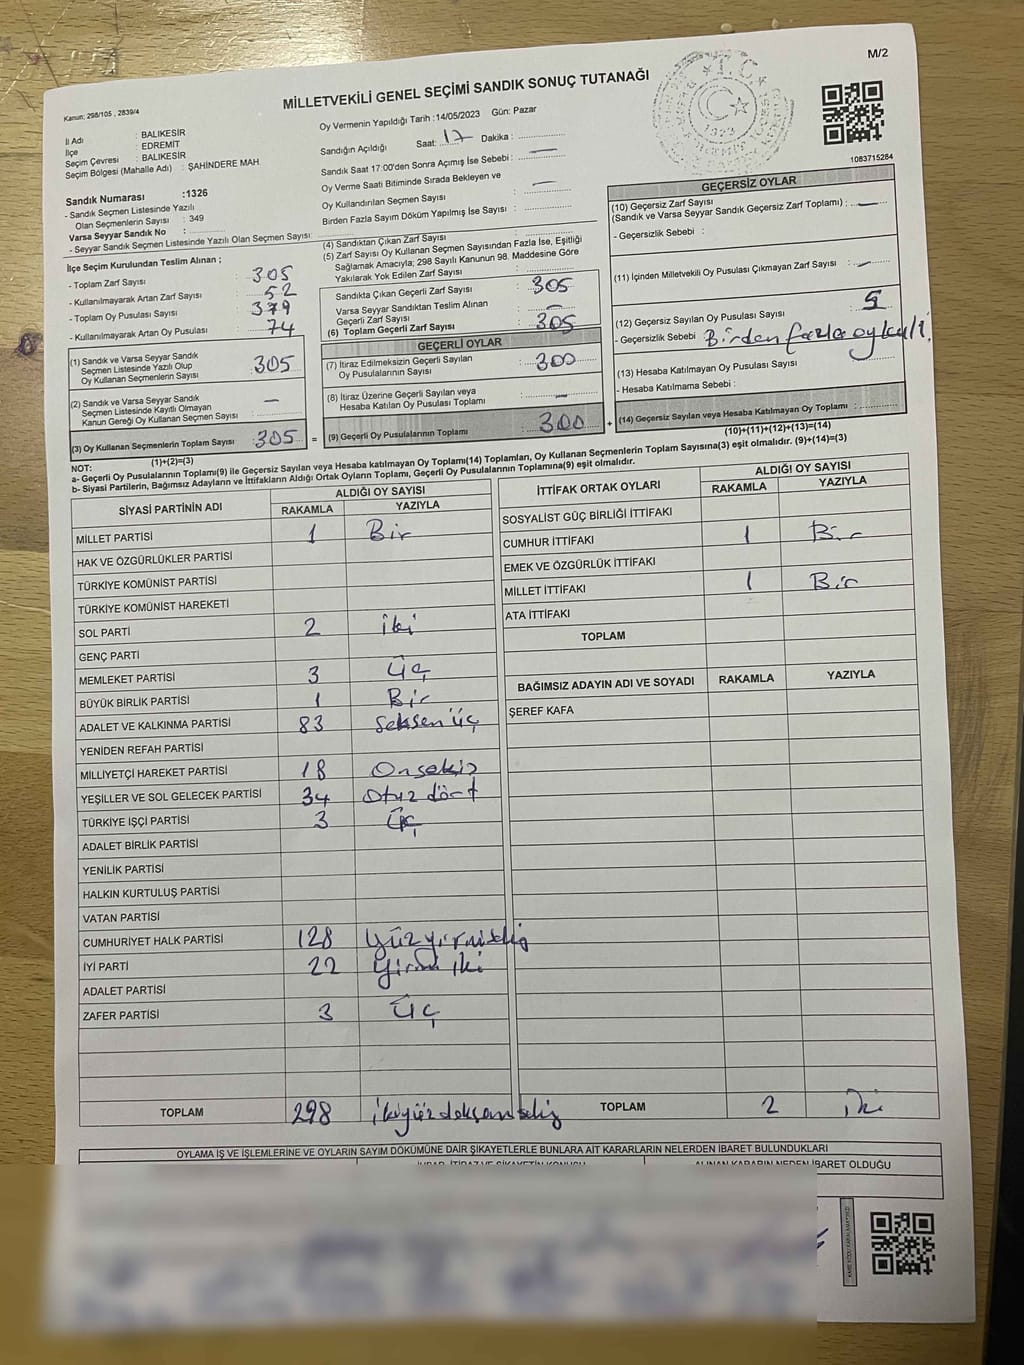 M/2
MİLLETVEKİLİ GENEL SEÇİMİ SANDIK SONUÇ TUTANAĞI
Kanun: 298/105 , 2839/4
İl Adı : BALIKESİR
İlçe : EDREMİT
Seçim Çevresi : BALIKESİR
Seçim Bölgesi (Mahalle Adı) : ŞAHİNDERE MAH.
Sandık Numarası :1326
- Sandık Seçmen Listesinde Yazılı
Olan Seçmenlerin Sayısı : 349
Varsa Seyyar Sandık No :
- Seyyar Sandık Seçmen Listesinde Yazılı Olan Seçmen Sayısı:
Oy Vermenin Yapıldığı Tarih :14/05/2023 Gün: Pazar
Sandığın Açıldığı Saat: 17 Dakika :
Sandık Saat 17:00'den Sonra Açımış İse Sebebi : —
Oy Verme Saati Bitiminde Sırada Bekleyen ve
Oy Kullandırılan Seçmen Sayısı : —
Birden Fazla Sayım Döküm Yapılmış İse Sayısı :
T.C.
1923
1083715284
İlçe Seçim Kurulundan Teslim Alınan ;
- Toplam Zarf Sayısı : 305
- Kullanılmayarak Artan Zarf Sayısı : 52
- Toplam Oy Pusulası Sayısı : 379
- Kullanılmayarak Artan Oy Pusulası : 74
(1) Sandık ve Varsa Seyyar Sandık
Seçmen Listesinde Yazılı Olup
Oy Kullanan Seçmenlerin Sayısı : 305
(2) Sandık ve Varsa Seyyar Sandık
Seçmen Listesinde Kayıtlı Olmayan
Kanun Gereği Oy Kullanan Seçmen Sayısı : —
(3) Oy Kullanan Seçmenlerin Toplam Sayısı : 305
(1)+(2)=(3)
(4) Sandıktan Çıkan Zarf Sayısı :
(5) Zarf Sayısı Oy Kullanan Seçmen Sayısından Fazla İse, Eşitliği
Sağlamak Amacıyla; 298 Sayılı Kanunun 98. Maddesine Göre
Yakılarak Yok Edilen Zarf Sayısı :
Sandıkta Çıkan Geçerli Zarf Sayısı : 305
Varsa Seyyar Sandıktan Teslim Alınan
Geçerli Zarf Sayısı : —
(6) Toplam Geçerli Zarf Sayısı : 305
GEÇERLİ OYLAR
(7) İtiraz Edilmeksizin Geçerli Sayılan
Oy Pusulalarının Sayısı : 300
(8) İtiraz Üzerine Geçerli Sayılan veya
Hesaba Katılan Oy Pusulası Toplamı : —
= (9) Geçerli Oy Pusulalarının Toplamı : 300 +
GEÇERSİZ OYLAR
(10) Geçersiz Zarf Sayısı
(Sandık ve Varsa Seyyar Sandık Geçersiz Zarf Toplamı) : —
- Geçersizlik Sebebi :
(11) İçinden Milletvekili Oy Pusulası Çıkmayan Zarf Sayısı : —
(12) Geçersiz Sayılan Oy Pusulası Sayısı : 5
- Geçersizlik Sebebi Birden fazla oy
(13) Hesaba Katılmayan Oy Pusulası Sayısı :
- Hesaba Katılmama Sebebi :
(14) Geçersiz Sayılan veya Hesaba Katılmayan Oy Toplamı :
(10)+(11)+(12)+(13)=(14)
NOT:
a- Geçerli Oy Pusulalarının Toplamı(9) ile Geçersiz Sayılan veya Hesaba katılmayan Oy Toplamı(14) Toplamları, Oy Kullanan Seçmenlerin Toplam Sayısına(3) eşit olmalıdır. (9)+(14)=(3)
b- Siyasi Partilerin, Bağımsız Adayların ve İttifakların Aldığı Ortak Oyların Toplamı, Geçerli Oy Pusulalarının Toplamına(9) eşit olmalıdır.
SİYASİ PARTİNİN ADI ALDIĞI OY SAYISI
RAKAMLA YAZIYLA
MİLLET PARTİSİ 1 Bir
HAK VE ÖZGÜRLÜKLER PARTİSİ
TÜRKİYE KOMÜNİST PARTİSİ
TÜRKİYE KOMÜNİST HAREKETİ
SOL PARTİ 2 iki
GENÇ PARTİ
MEMLEKET PARTİSİ 3 Üç
BÜYÜK BİRLİK PARTİSİ 1 Bir
ADALET VE KALKINMA PARTİSİ 83 Seksen üç
YENİDEN REFAH PARTİSİ
MİLLİYETÇİ HAREKET PARTİSİ 18 Onsekiz
YEŞİLLER VE SOL GELECEK PARTİSİ 34 Otuz dört
TÜRKİYE İŞÇİ PARTİSİ 3 Üç
ADALET BİRLİK PARTİSİ
YENİLİK PARTİSİ
HALKIN KURTULUŞ PARTİSİ
VATAN PARTİSİ
CUMHURİYET HALK PARTİSİ 128 Yüzyirmisekiz
İYİ PARTİ 22 Yirmi iki
ADALET PARTİSİ
ZAFER PARTİSİ 3 Üç
TOPLAM 298 ikiyüzdoksansekiz
İTTİFAK ORTAK OYLARI ALDIĞI OY SAYISI
RAKAMLA YAZIYLA
SOSYALİST GÜÇ BİRLİĞİ İTTİFAKI
CUMHUR İTTİFAKI 1 Bir
EMEK VE ÖZGÜRLÜK İTTİFAKI
MİLLET İTTİFAKI 1 Bir
ATA İTTİFAKI
TOPLAM
BAĞIMSIZ ADAYIN ADI VE SOYADI RAKAMLA YAZIYLA
ŞEREF KAFA
TOPLAM 2 iki
OYLAMA İŞ VE İŞLEMLERİNE VE OYLARIN SAYIM DÖKÜMÜNE DAİR ŞİKAYETLERLE BUNLARA AİT KARARLARIN NELERDEN İBARET BULUNDUKLARI
ALINAN KARARIN NEDEN İBARET OLDUĞU